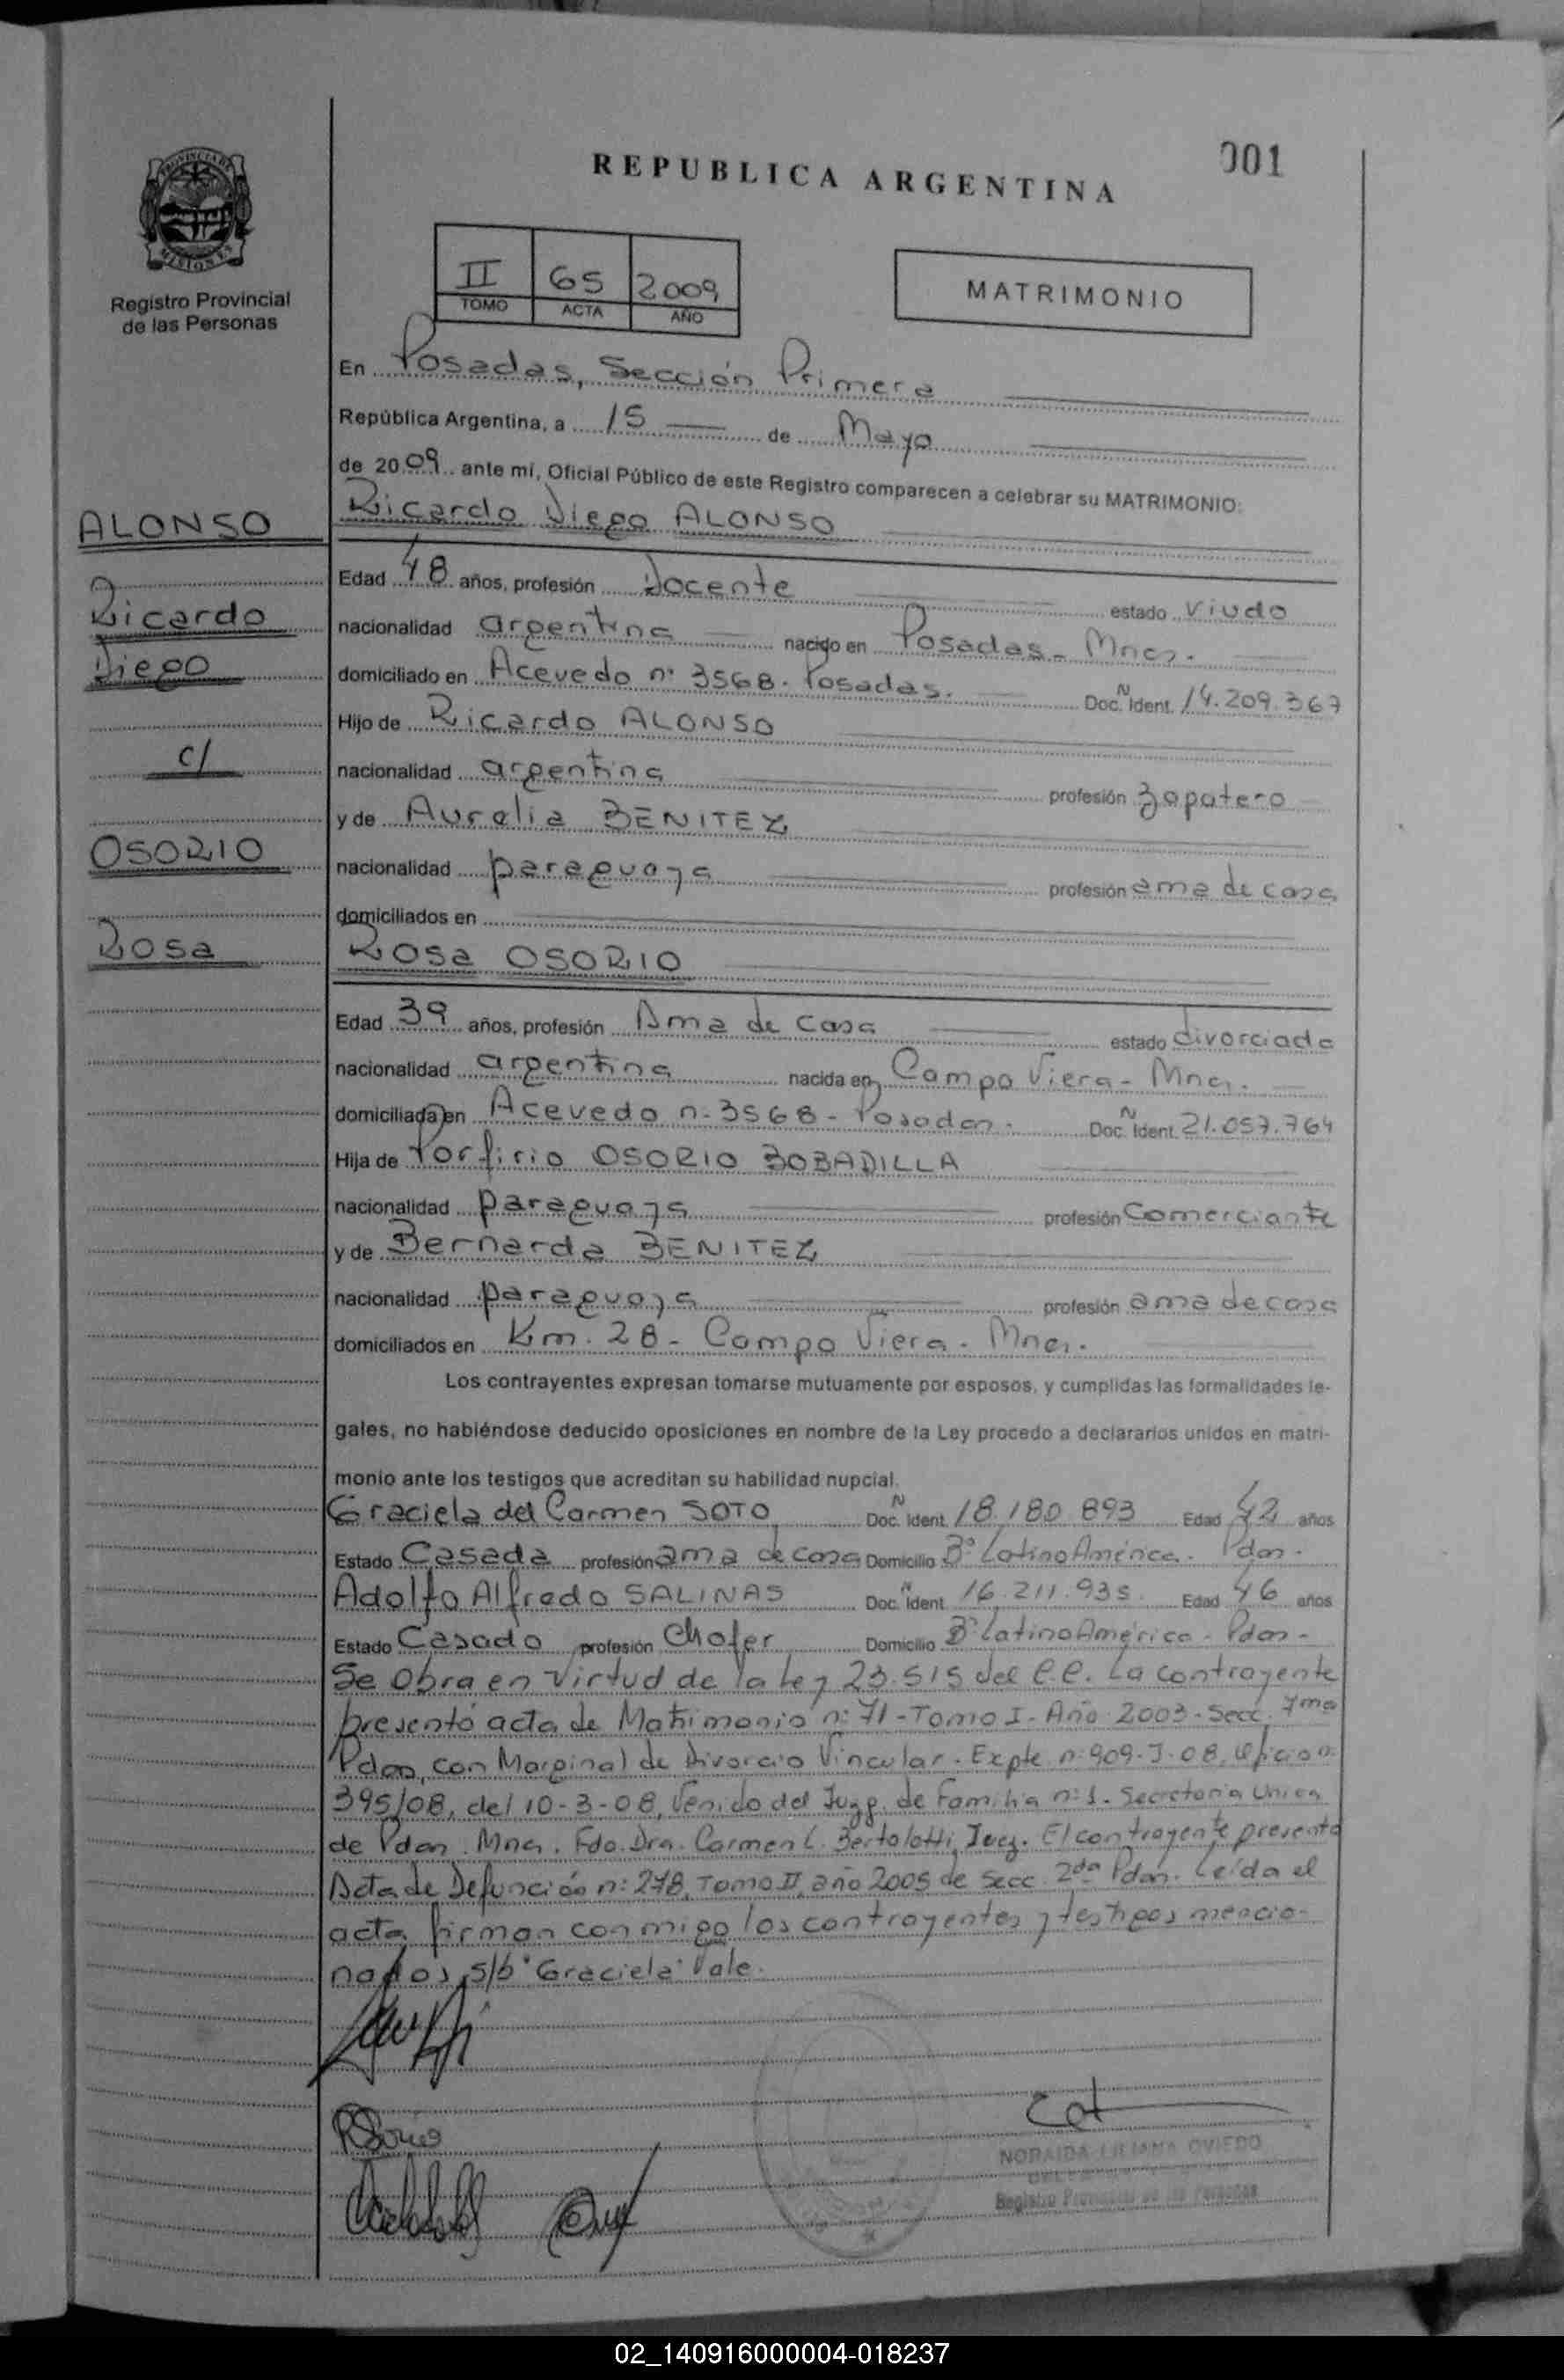 REPUBLICA ARGENTINA
001
PROVINCIA DE
MISIONES
Registro Provincial
de las Personas
II 65 2009
TOMO ACTA AÑO
MATRIMONIO
En Posadas, Sección Primera
República Argentina, a 15 de Mayo
de 2009 ante mí, Oficial Público de este Registro comparecen a celebrar su MATRIMONIO:
ALONSO
Ricardo
Diego
c/
OSORIO
Rosa
Ricardo Diego ALONSO
Edad 48 años, profesión Docente estado Viudo
nacionalidad argentina nacido en Posadas - Mnes.
domiciliado en Acevedo nº 3568. Posadas. Doc. N Ident. 14.209.367
Hijo de Ricardo ALONSO
nacionalidad argentina profesión Zapatero
y de Aurelia BENITEZ
nacionalidad paraguaya profesión ama de casa
domiciliados en
Rosa OSORIO
Edad 39 años, profesión Ama de casa estado divorciada
nacionalidad argentina nacida en Campo Viera - Mnes.
domiciliada en Acevedo n: 3568 - Posadas. Doc. N Ident. 21.057.764
Hija de Porfirio OSORIO BOBADILLA
nacionalidad paraguaya profesión Comerciante
y de Bernarda BENITEZ
nacionalidad paraguaya profesión ama de casa
domiciliados en Km. 28 - Campo Viera - Mnes.
Los contrayentes expresan tomarse mutuamente por esposos, y cumplidas las formalidades le-
gales, no habiéndose deducido oposiciones en nombre de la Ley procedo a declararlos unidos en matri-
monio ante los testigos que acreditan su habilidad nupcial.
Graciela del Carmen SOTO Doc. N Ident. 18.180.893 Edad 42 años
Estado Casada profesión ama de casa Domicilio Bº Latino América - Pdas.
Adolfo Alfredo SALINAS Doc. N Ident. 16.211.935 Edad 46 años
Estado Casado profesión Chofer Domicilio Bº Latino América - Pdas -
Se obra en virtud de la Ley 23.515 del C.C. La contrayente
presentó acta de Matrimonio n: 71 - Tomo I - Año 2003 - Secc. 7ma
Pdas, con Marginal de Divorcio Vincular. Expte n: 909-J-08, Oficio n:
395/08, del 10-3-08, Venido del Juzg. de Familia n: 1 - Secretaria Unica
de Pdas. Mnes. Fdo. Dra. Carmen L. Bertolotti, Juez. El contrayente presentó
Acta de Defunción n: 278, Tomo II, año 2005 de Secc. 2da Pdas. Leída el
acta firman conmigo los contrayentes y testigos mencio-
nados, s/b "Graciela" Vale.
NORAIDA LILIANA OVIEDO
Registro Provincial de las Personas
02_140916000004-018237